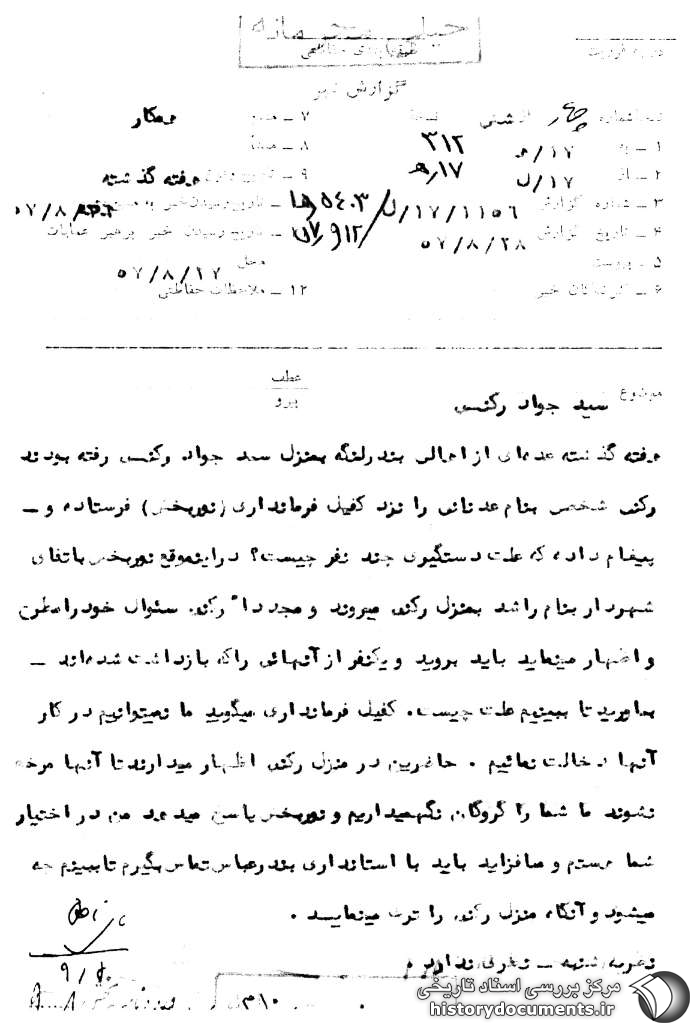 خیلی محرمانه
درجه فوریت
طبقه‌بندی حفاظتی
گزارش خبر
نسخه شماره چهار از شش نسخه
۱ ــ به ۳۱۲
۲ ــ از ۱۷/ل ۱۷/هـ
۳ ــ شماره گزارش ۱۱۵۶/۱۷/ل
۴ ــ تاریخ گزارش ۵۷/۸/۲۸
۵ ــ پیوست
۶ ــ گیرندگان خبر
۷ ــ منبع همکار
۸ ــ منشأ
۹ ــ تاریخ وقوع هفته گذشته
تاریخ رسیدن خبر به منبع
تاریخ رسیدن خبر برهبر عملیات
محل ۵۷/۸/۲۷
۱۲ ــ ملاحظات حفاظتی
موضوع سید جواد رکنی
عطف
پیرو
هفته گذشته عده‌ای از اهالی بندرلنگه بمنزل سید جواد رکنی رفته بودند
رکنی شخصی بنام عدنانی را نزد کفیل فرمانداری (نوربخش) فرستاده و ــ
پیغام داده که علت دستگیری چند نفر چیست؟ دراینموقع نوربخش باتفاق
شهردار بنام راشد بمنزل رکنی میروند و مجدداً رکنی سئوال خودرامطرح
و اظهار مینماید باید بروید و یکنفر از آنهائی راکه بازداشت شده‌اند ــ
بیاورید تا ببینیم علت چیست. کفیل فرمانداری میگوید ما نمیتوانیم در کار
آنها دخالت نمائیم . حاضرین در منزل رکنی اظهار میدارند تا آنها مرخص
نشوند ما شما را گروگان نگهمیداریم و نوربخش پاسخ میدهد من در اختیار
شما هستم و میافزاید باید با استانداری بندرعباس تماس بگیرم تا ببینم چه
میشود و آنگاه منزل رکنی را ترک مینمایند .
نظریه شنبه ــ نظری ندارد .
۹/۱۰
۳۱۰
مرکز بررسی اسناد تاریخی
historydocuments.ir